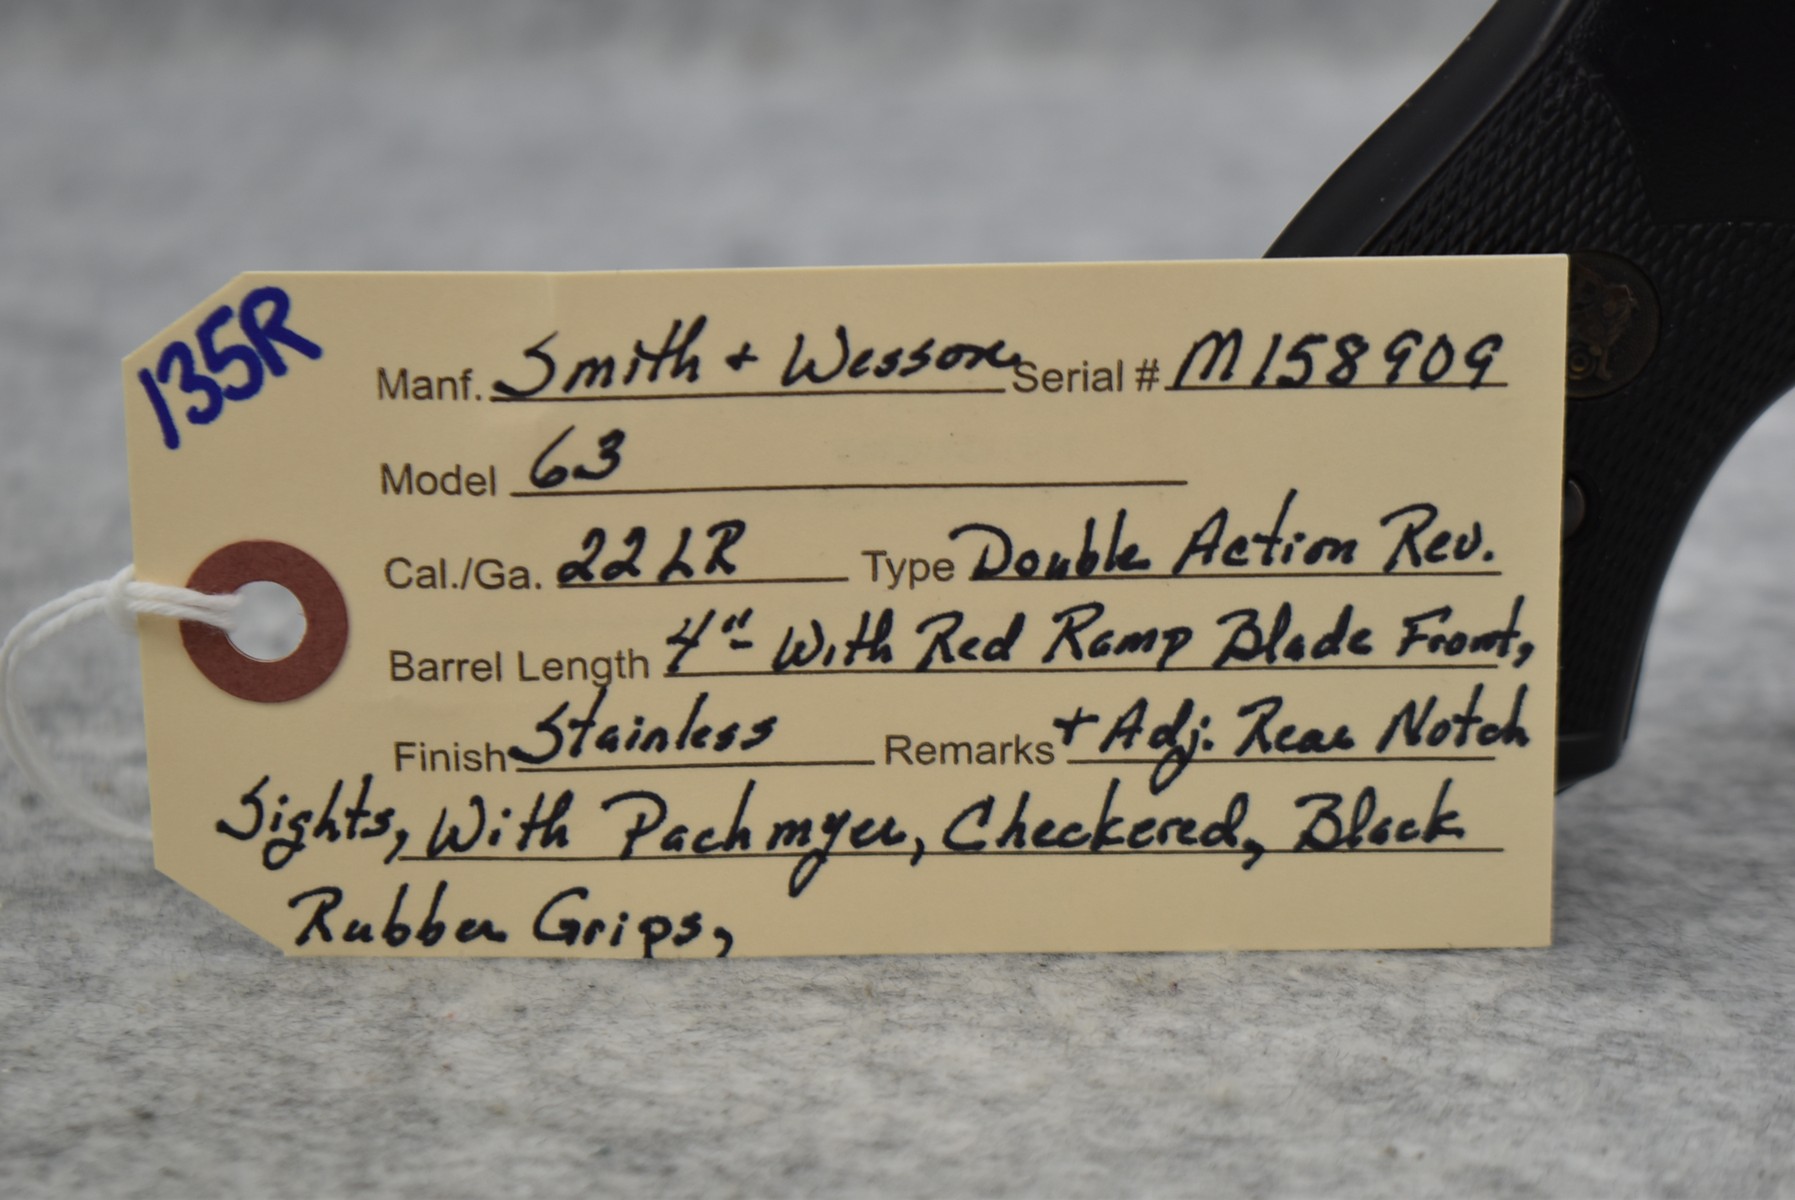 135R
Manf. Smith + Wesson Serial # M158909
Model 63
Cal./Ga. 22LR Type Double Action Rev.
Barrel Length 4" With Red Ramp Blade Front,
Finish Stainless Remarks + Adj. Rear Notch
Sights, With Pachmyer, Checkered, Black
Rubber Grips,